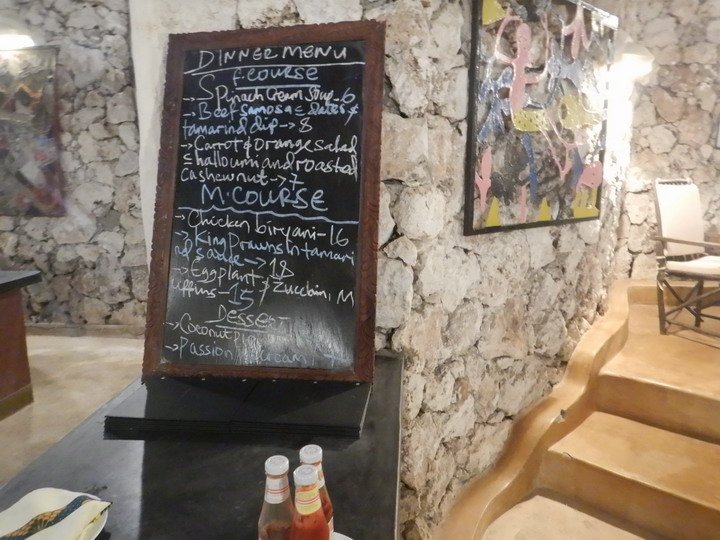 DINNER MENU
F. COURSE
→ Spinach Cream Soup - 6
→ Beef Samosa c Dates &
tamarind dip → 8
→ Carrot & Orange Salad
c halloumi and roasted
Cashewnut → 7
M. COURSE
→ Chicken biryani - 16
→ King Prawns In tamari
nd sauce → 18
→ Eggplant & Zucchini M
uffins - 15
Dessert
→ Coconut
→ Passion Icecream 7